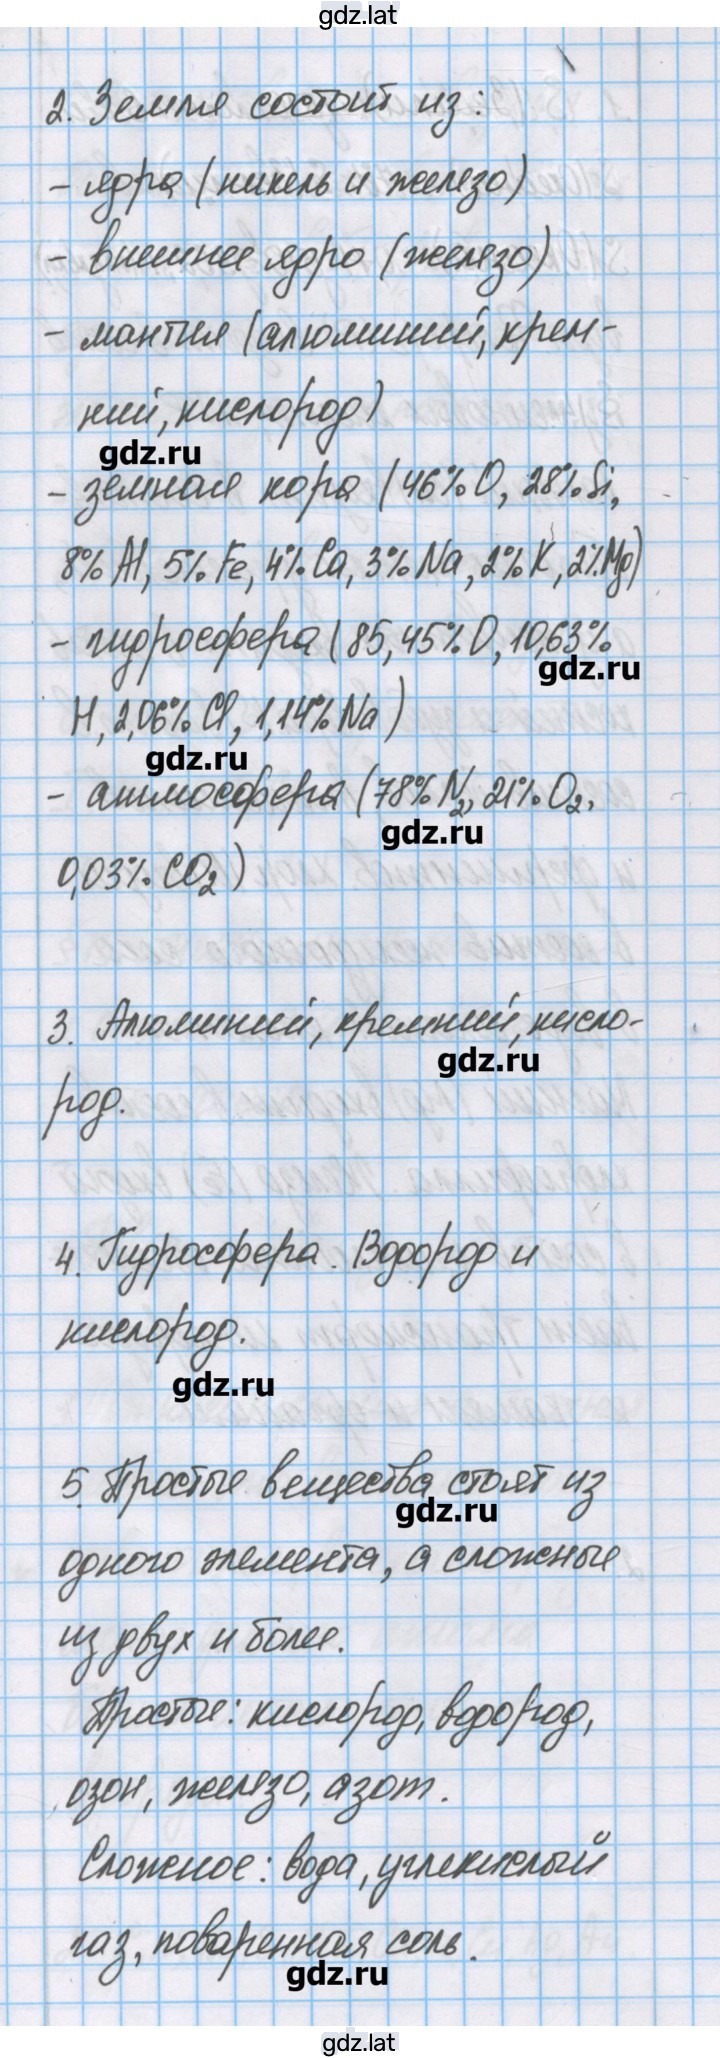 gdz.lat
2. Земля состоит из:
- ядра (никель и железо)
- внешнее ядро (железо)
- мантия (алюминий, крем-
ний, кислород)
gdz.ru
- земная кора (46% O, 28% Si,
8% Al, 5% Fe, 4% Ca, 3% Na, 2% K, 2% Mg)
- гидросфера (85,45% O, 10,63%
gdz.ru
H, 2,06% Cl, 1,14% Na)
gdz.ru
- атмосфера (78% N₂, 21% O₂,
gdz.ru
0,03% CO₂)
3. Алюминий, кремний, кисло-
gdz.ru
род.
4. Гидросфера. Водород и
кислород.
gdz.ru
5. Простые вещества стоят из
gdz.ru
одного элемента, а сложные
из двух и более.
Простые: кислород, водород,
озон, железо, азот.
Сложное: вода, углекислый
газ, поваренная соль.
gdz.ru
gdz.lat